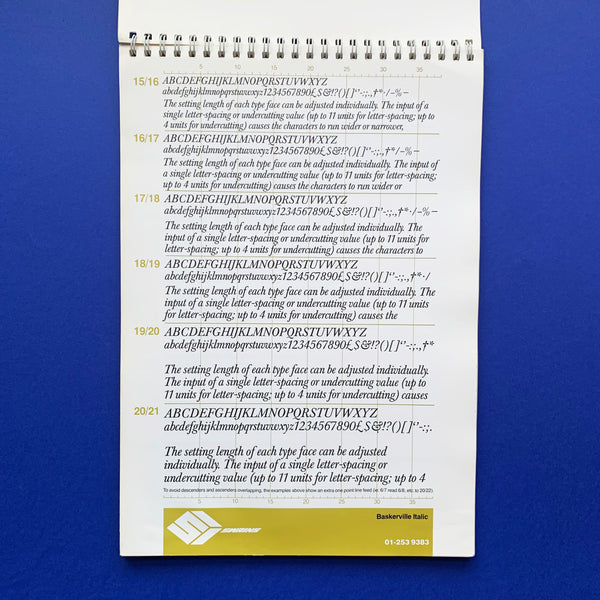 5 10 15 20 25 30 35
15/16 ABCDEFGHIJKLMNOPQRSTUVWXYZ
abcdefghijklmnopqrstuvwxyz1234567890£$&!?()[]‘’-:;.,†*·/-%–
The setting length of each type face can be adjusted individually. The input of a
small letter-spacing or undercutting value (up to 11 units for letter-spacing; up to
4 units for undercutting) causes the characters to run wider or narrower,
16/17 ABCDEFGHIJKLMNOPQRSTUVWXYZ
abcdefghijklmnopqrstuvwxyz1234567890£$&!?()[]‘’-:;.,†*·/-%–
The setting length of each type face can be adjusted individually. The input of
a single letter-spacing or undercutting value (up to 11 units for letter-spacing;
up to 4 units for undercutting) causes the characters to run wider or
17/18 ABCDEFGHIJKLMNOPQRSTUVWXYZ
abcdefghijklmnopqrstuvwxyz1234567890£$&!?()[]‘’-:;.,†*·/-%–
The setting length of each type face can be adjusted individually. The
input of a single letter-spacing or undercutting value (up to 11 units for
letter-spacing; up to 4 units for undercutting) causes the characters to
18/19 ABCDEFGHIJKLMNOPQRSTUVWXYZ
abcdefghijklmnopqrstuvwxyz1234567890£$&!?()[]‘’-:;.,†*·/
The setting length of each type face can be adjusted individually. The
input of a single letter-spacing or undercutting value (up to 11 units
for letter-spacing; up to 4 units for undercutting) causes the
19/20 ABCDEFGHIJKLMNOPQRSTUVWXYZ
abcdefghijklmnopqrstuvwxyz1234567890£$&!?()[]‘’-:;.,†*
The setting length of each type face can be adjusted individually.
The input of a single letter-spacing or undercutting value (up to
11 units for letter-spacing; up to 4 units for undercutting) causes
20/21 ABCDEFGHIJKLMNOPQRSTUVWXYZ
abcdefghijklmnopqrstuvwxyz1234567890£$&!?()[]‘’-:;.
The setting length of each type face can be adjusted
individually. The input of a single letter-spacing or
undercutting value (up to 11 units for letter-spacing; up to 4
To avoid descenders and ascenders overlapping, the examples above show an extra one point line feed (ie. 6/7 read 6/8, etc. to 20/22)
5 10 15 20 25 30 35
Baskerville Italic
01-253 9383